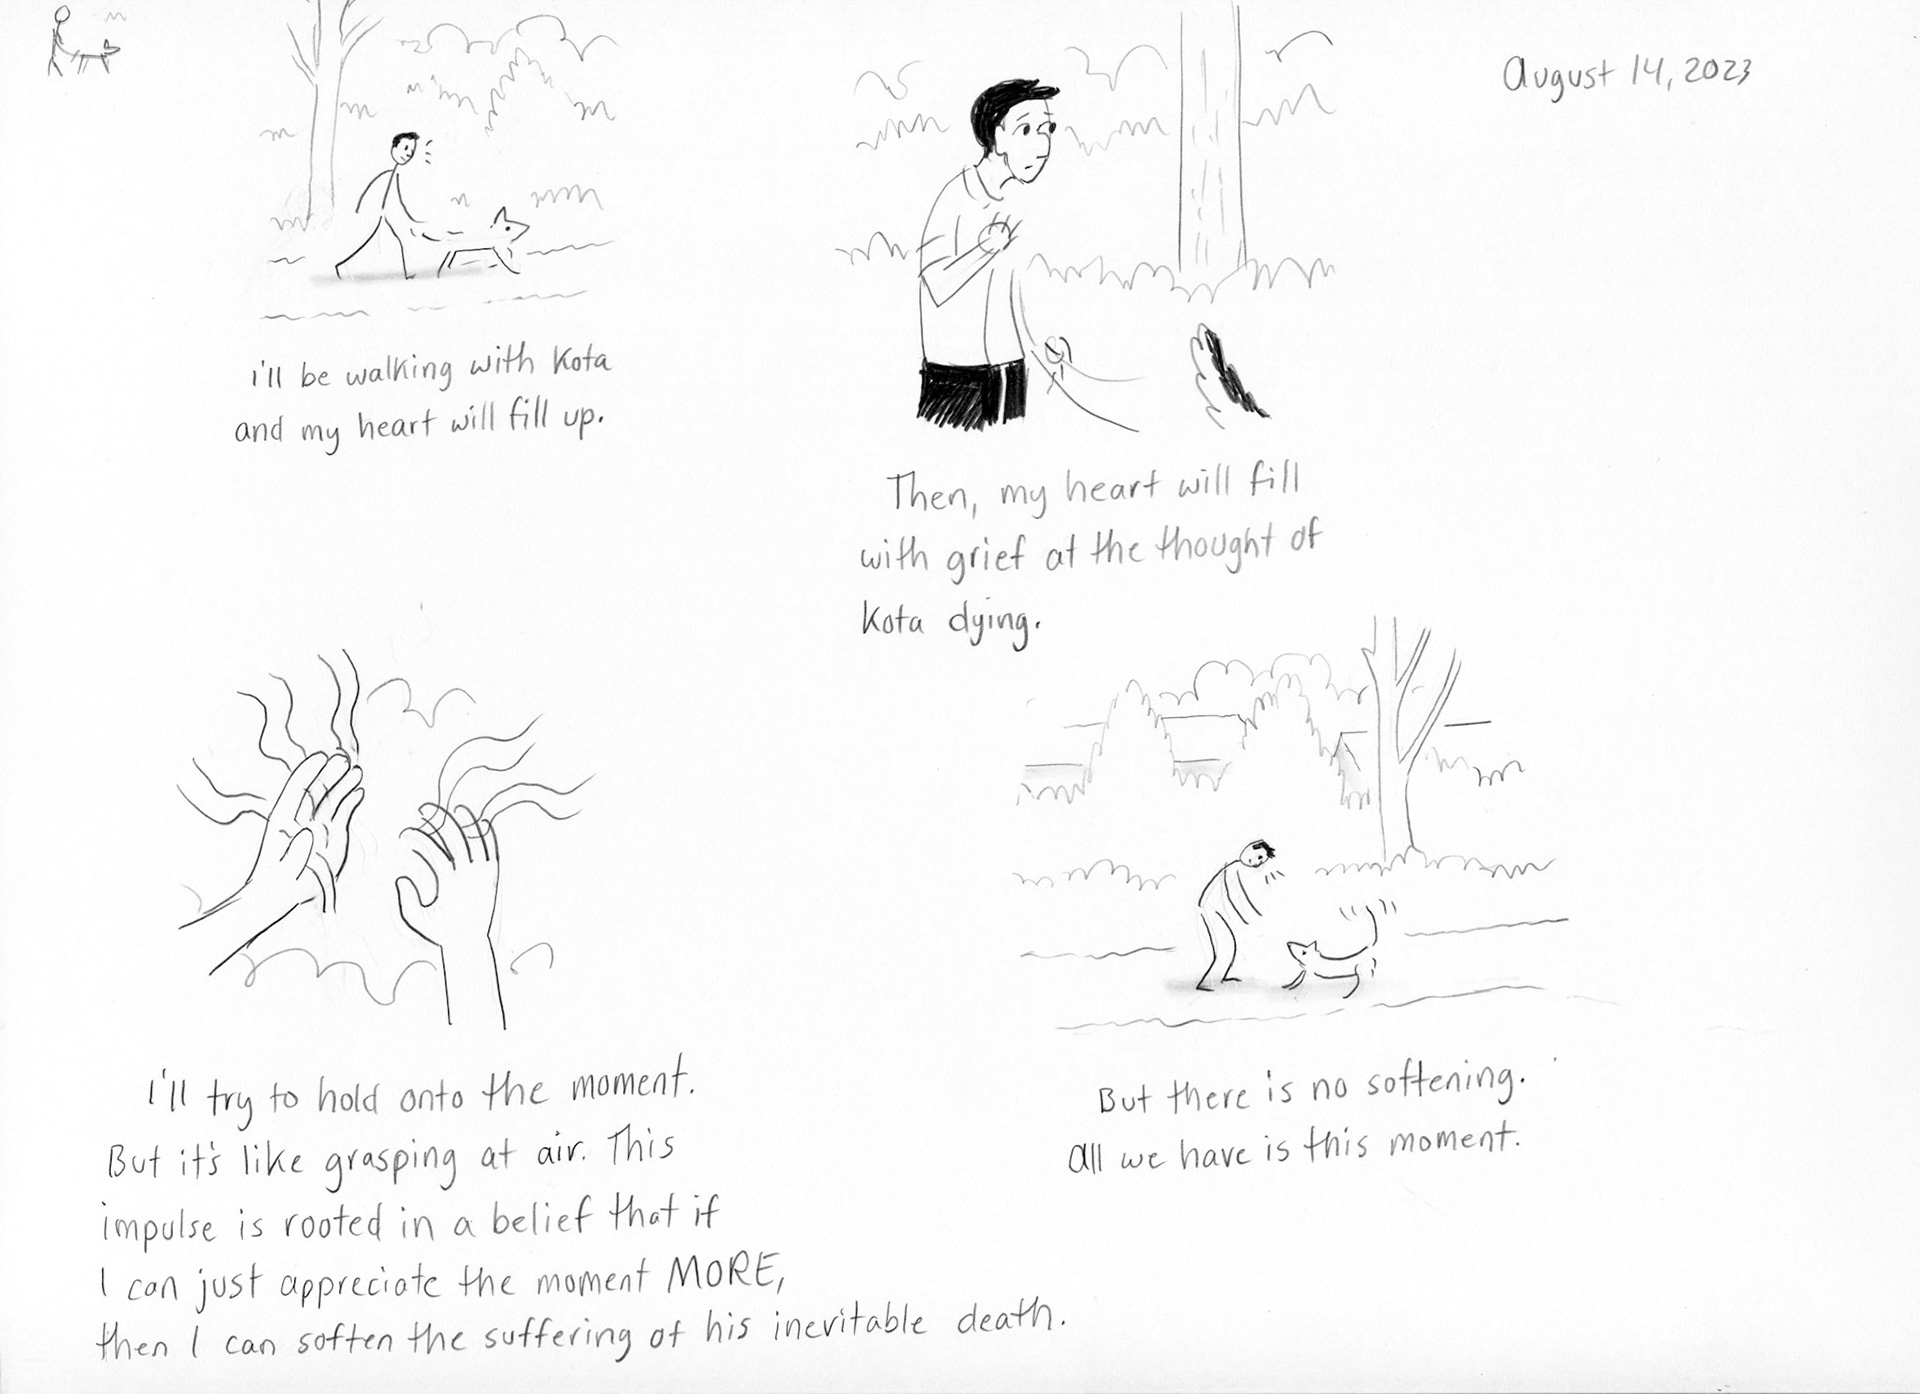 August 14, 2023
i'll be walking with Kota
and my heart will fill up.
Then, my heart will fill
with grief at the thought of
Kota dying.
I'll try to hold onto the moment.
But it's like grasping at air. This
impulse is rooted in a belief that if
I can just appreciate the moment MORE,
then I can soften the suffering of his inevitable death.
But there is no softening.
All we have is this moment.